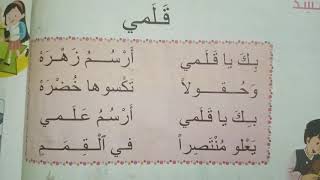 قَلَمي
بِكَ يا قَلَمي أَرْسُـمُ زَهْـرَة
وَحُـقــولاً تَكْسوها خُضْرَة
بِـكَ يا قَلَمي أَرْسُمُ عَلَـمي
يَعْلو مُنْتَصِراً في اَلْقِمَـمِ